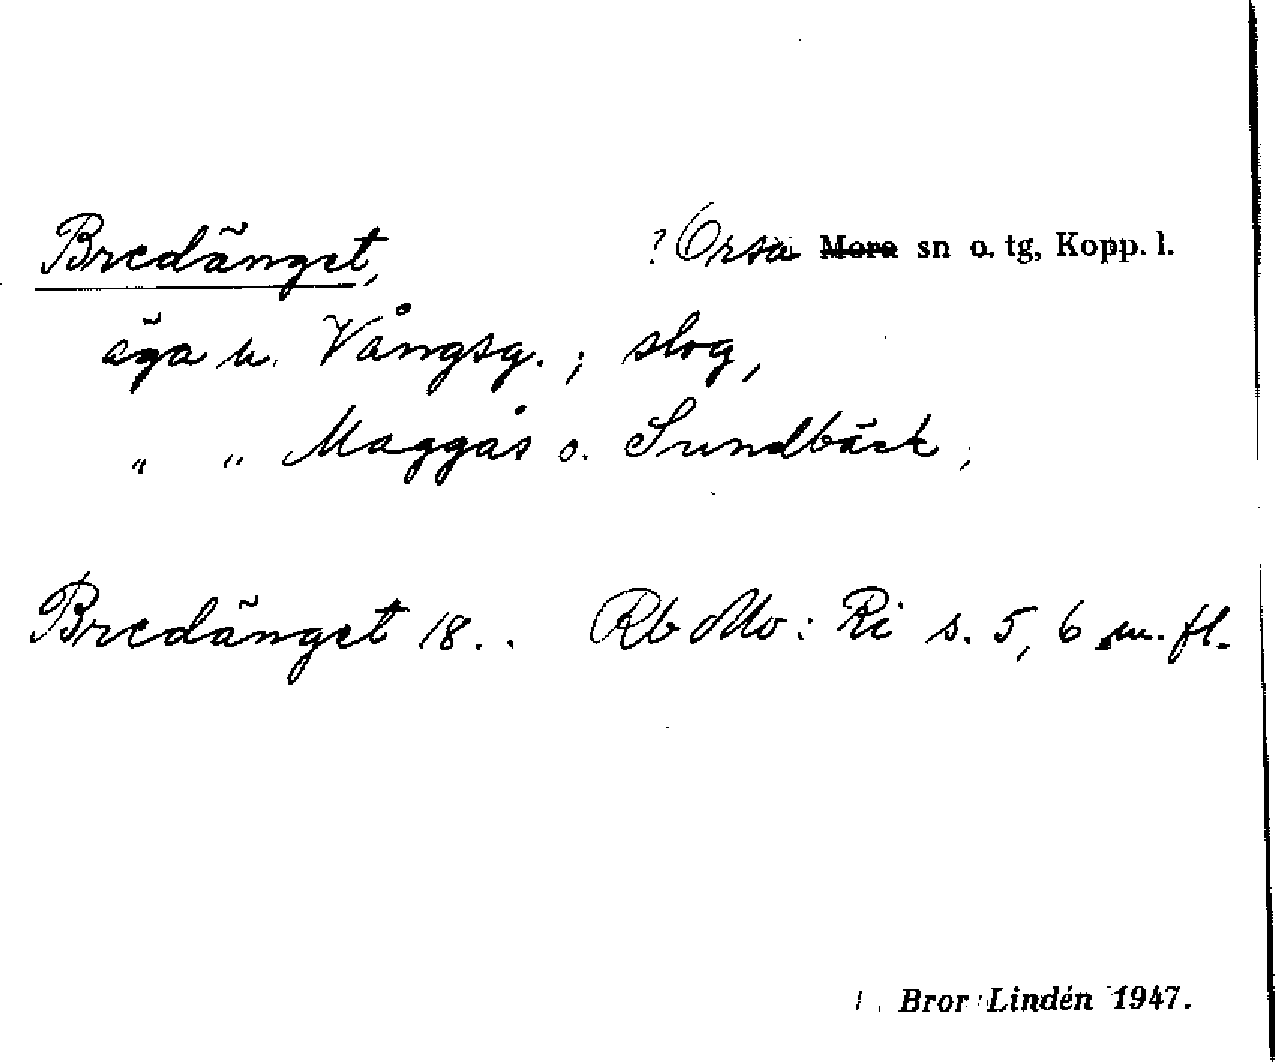 Bredänget, ? Orsa Mora sn o. tg, Kopp. l.
äga u. Vångsg.; slog,
" " Maggås o. Sundbäck,
Bredänget 18.. Rb Mo: Ri s. 5, 6 m. fl.
Bror Lindén 1947.